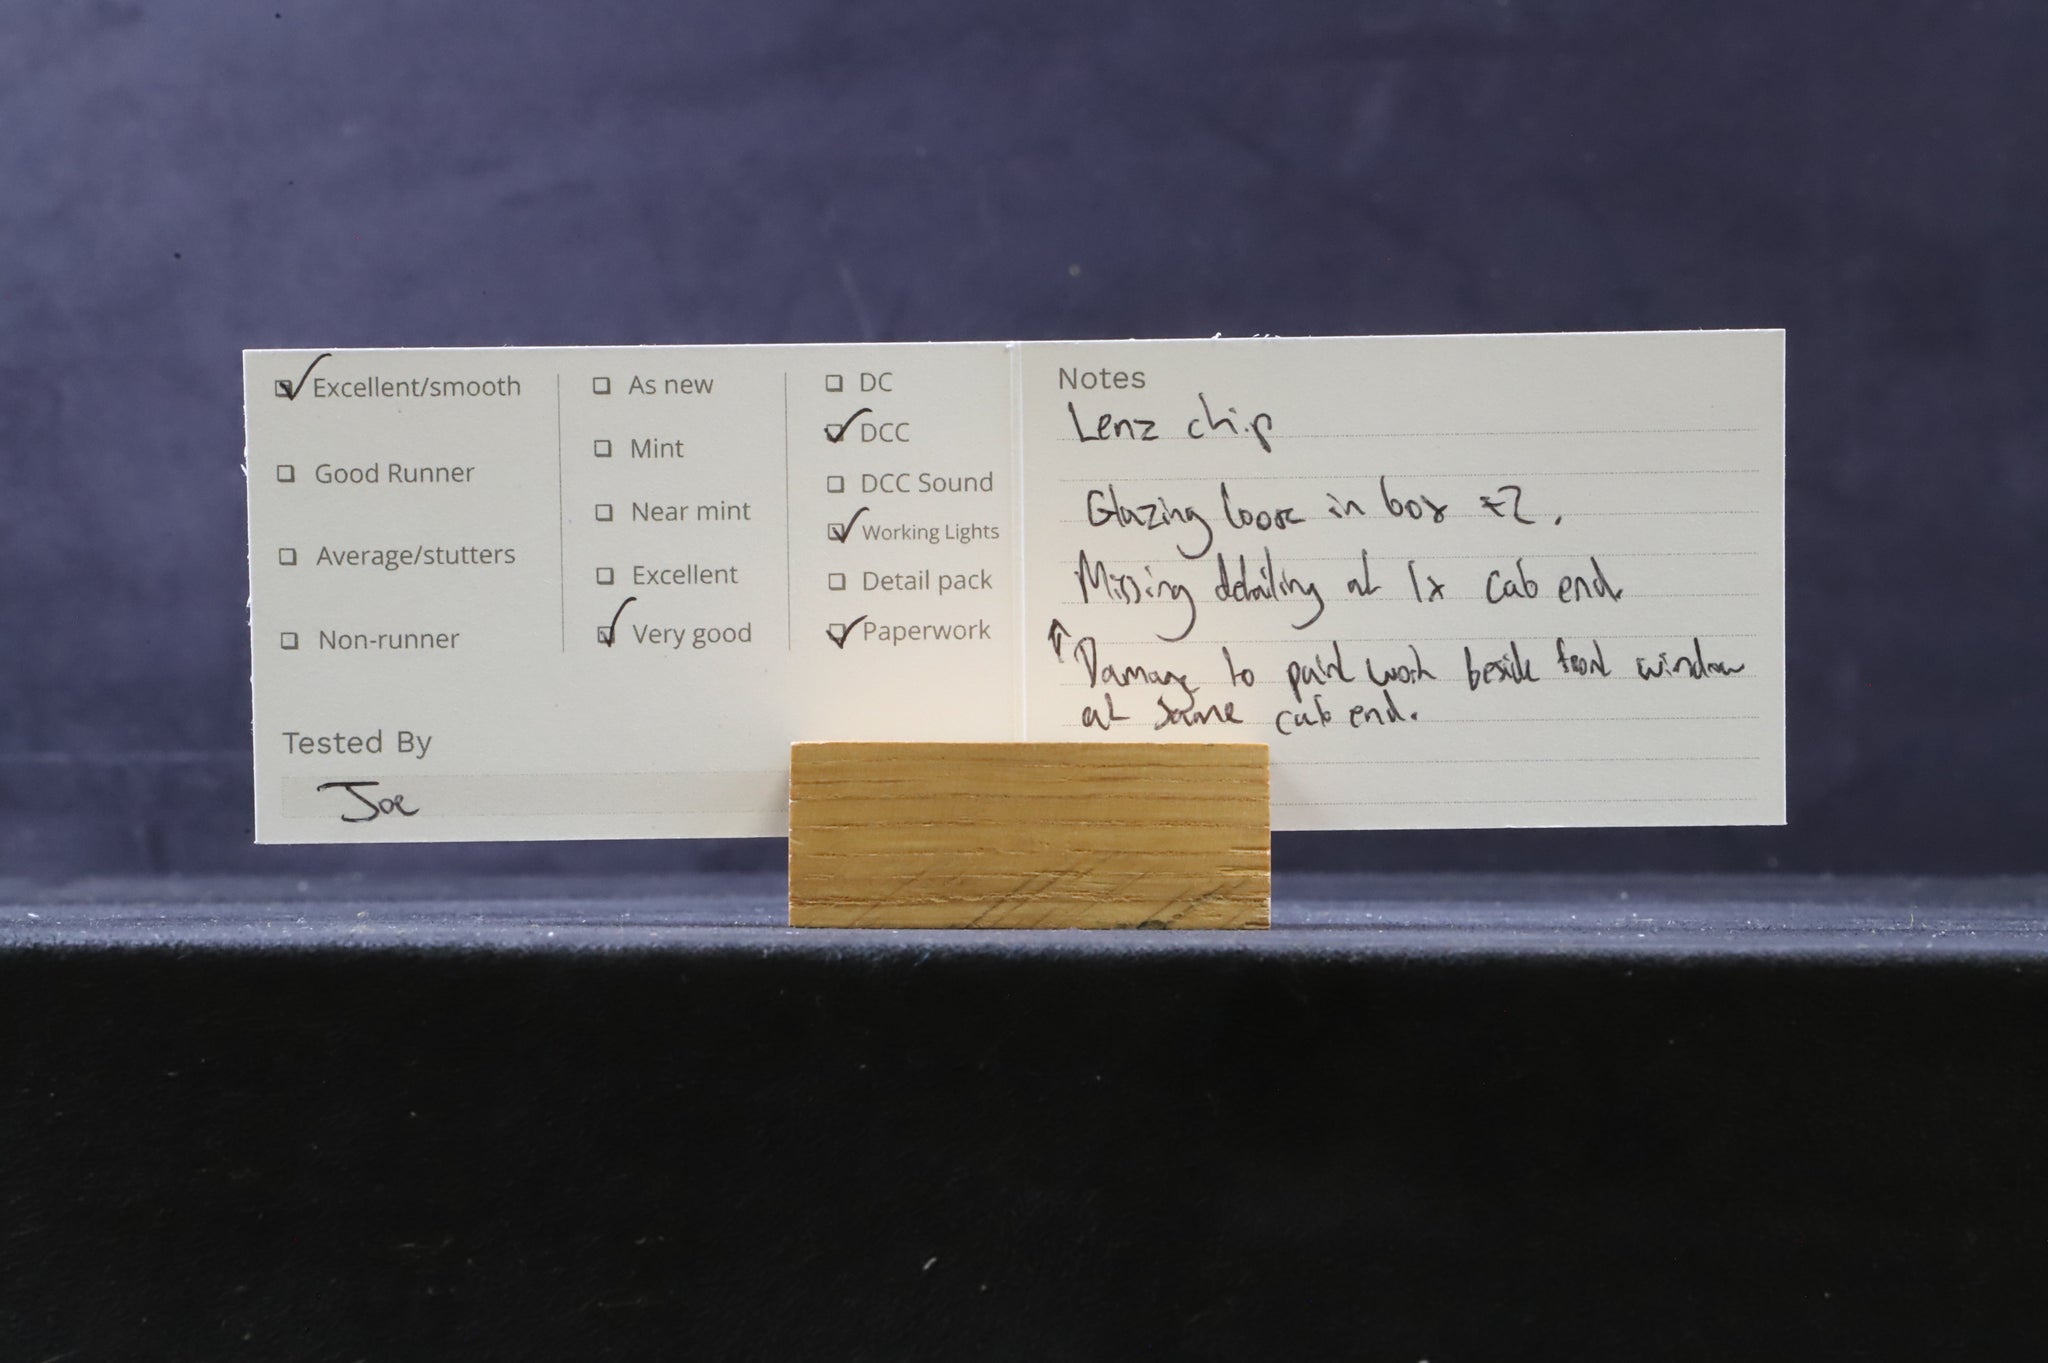 Excellent/smooth
Good Runner
Average/stutters
Non-runner
As new
Mint
Near mint
Excellent
Very good
DC
DCC
DCC Sound
Working Lights
Detail pack
Paperwork
Tested By
Joe
Notes
Lenz chip
Glazing loose in box x2.
Missing detailing at 1x cab end.
↑ Damage to paint work beside front window
at same cab end.